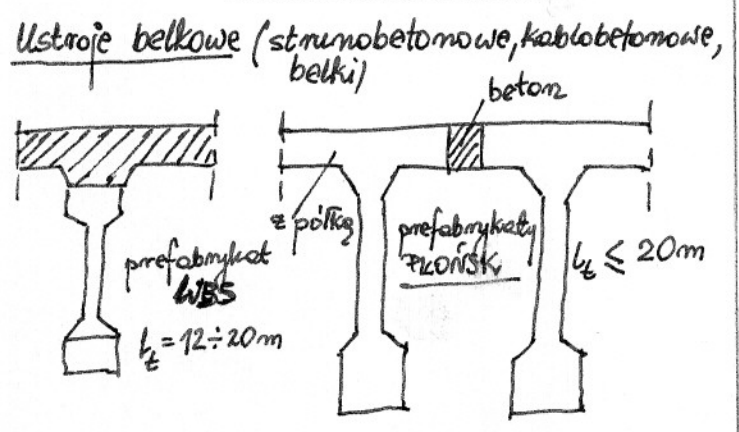 Ustroje belkowe (strunobetonowe, kablobetonowe,
belki)
beton
z półką
prefabrykat
WBS
lt = 12÷20m
prefabrykaty
PŁOŃSK
lt ≤ 20m